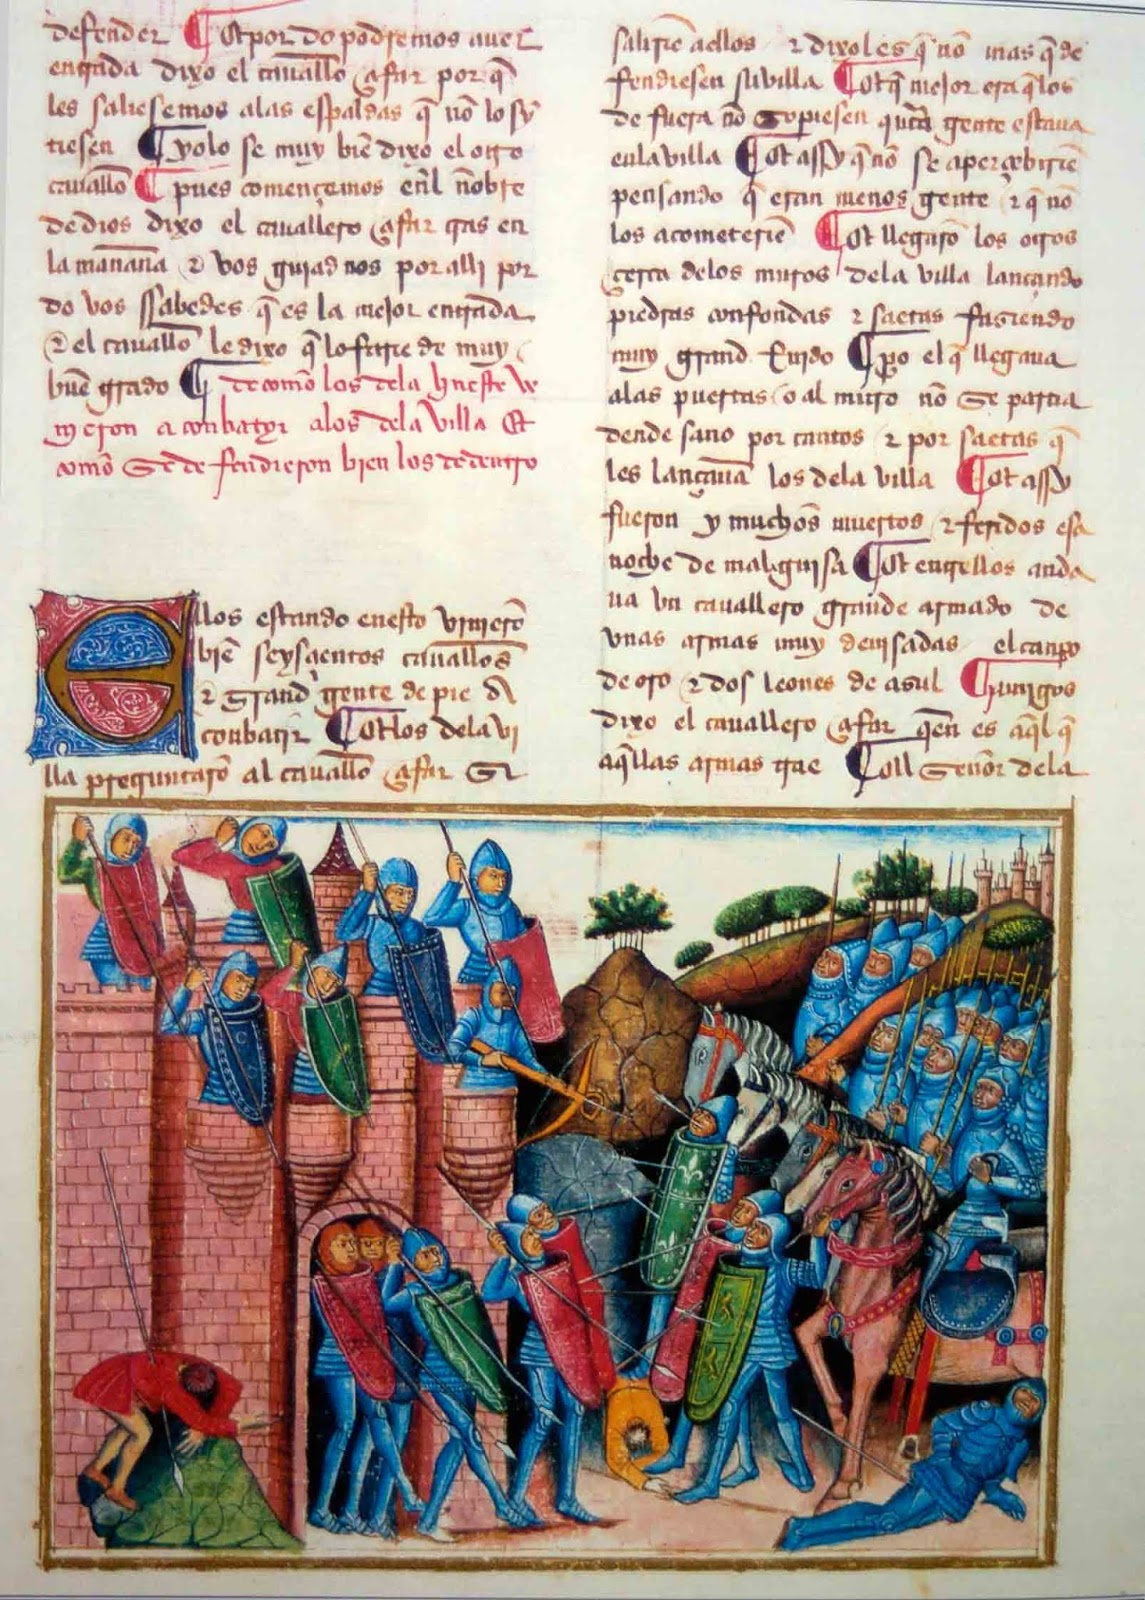 defender ¶ Et por do podremos aver
entrada dixo el cavallo çifar por q̃
les saliesemos alas espaldas q̃ nõ lo sỹ
tiesen ¶ yolo se muy biẽ dixo el otro
cavallõ ¶ pues comencemos enl nõbre
de dios dixo el cavallero çifar cras en
la mañana ⁊ vos guiad nos por alli por
do vos sabedes q̃ es la mejor entrada
⁊ el cavallõ le dixo q̃ lo farie de muy
buẽ grado ¶ de como los dela hueste vi
nieron a conbatyr alos dela villa Et
como se defendieron bien los de dentro
Ellos estando enesto vinierõ
biẽ seysçientos cavallos
⁊ grand gente de pie a
conbatir ¶ Et los dela vi
lla preguntarõ al cavallõ çifar si
salirie a ellos ⁊ dixoles q̃ nõ mas q̃ de
fendiesen su villa ¶ Et q̃ mejor era q̃ los
de fuera nõ sopiesen quãta gente estava
enla villa ¶ Et assy q̃ nõ se aperçebiriẽ
pensando q̃ eran menos gente ⁊ q̃ nõ
los acometeriẽ ¶ Et llegarõ los otros
çerca delos muros dela villa lançando
piedras con fondas ⁊ saetas fasiendo
muy grand Ruido ¶ po el q̃ llegava
alas puertas o al muro nõ se partia
dende sano por cantos ⁊ por saetas q̃
les lançavã los dela villa ¶ Et assy
fueron y muchos muertos ⁊ feridos esa
noche de mala guisa ¶ Et entrellos anda
va un cavallero grande armado de
unas armas muy devisadas el canpo
de oro ⁊ dos leones de asul ¶ amigos
dixo el cavallero çifar quẽ es aq̃l q̃
aq̃llas armas trae ¶ El señor dela